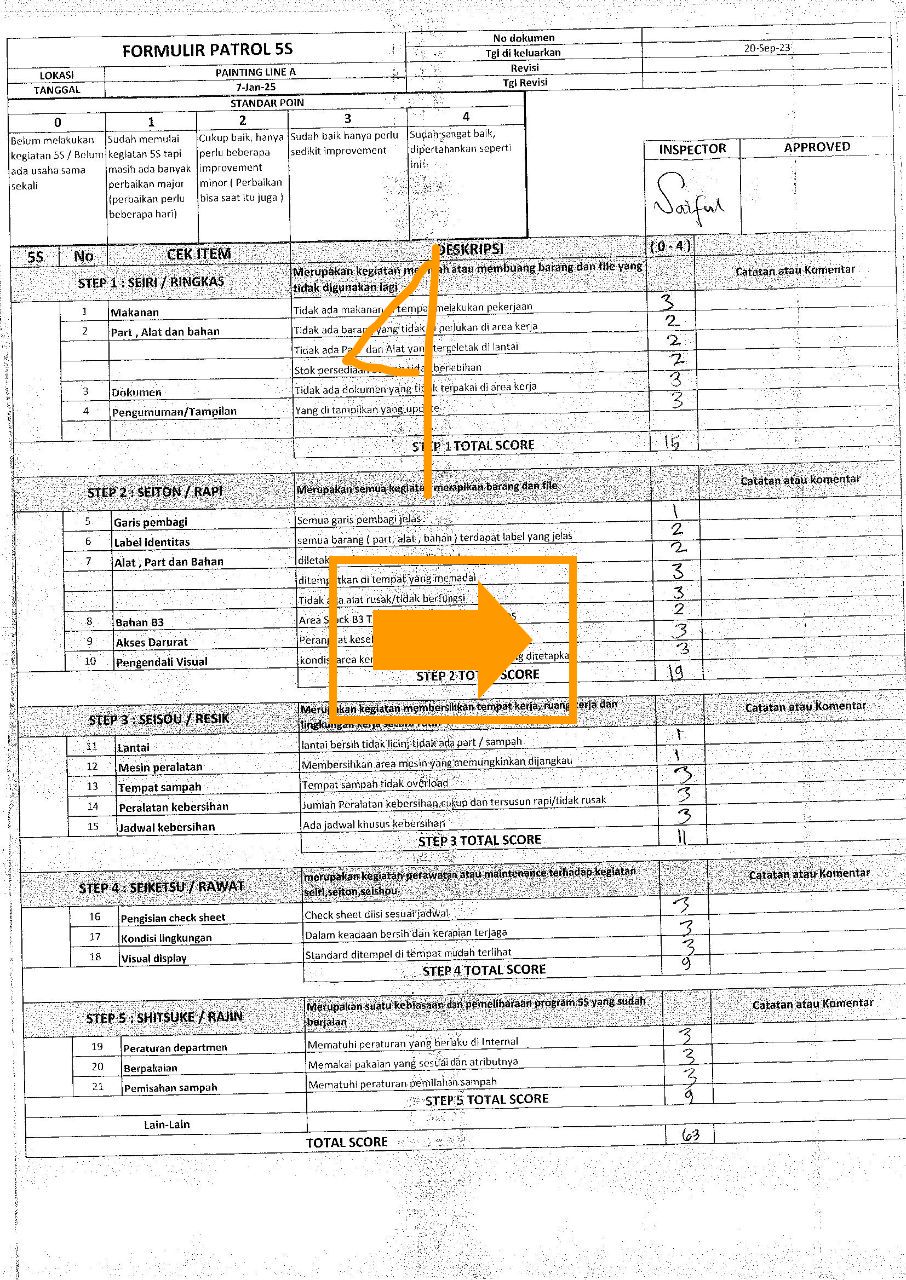 FORMULIR PATROL 5S
No dokumen
Tgl di keluarkan 20-Sep-23
Revisi
Tgi Revisi
LOKASI PAINTING LINE A
TANGGAL 7-Jan-25
STANDAR POIN
0 1 2 3 4
Belum melakukan kegiatan 5S / Belum ada usaha sama sekali
Sudah memulai kegiatan 5S tapi masih ada banyak perbaikan major (perbaikan perlu beberapa hari)
Cukup baik, hanya perlu beberapa improvement minor ( Perbaikan bisa saat itu juga )
Sudah baik hanya perlu sedikit improvement
Sudah sangat baik, dipertahankan seperti ini
INSPECTOR APPROVED
Saiful
5S No CEK ITEM DESKRIPSI (0 - 4)
STEP 1 : SEIRI / RINGKAS Merupakan kegiatan atau membuang barang dan file yang tidak digunakan lagi Catatan atau Komentar
1 Makanan Tidak ada makanan tempat melakukan pekerjaan 3
2 Part , Alat dan bahan Tidak ada barang yang tidak perlukan di area kerja 2
Tidak ada Part dan Alat yang tergeletak di lantai 2
Stok persediaan berlebihan 2
3 Dokumen Tidak ada dokumen yang tidak terpakai di area kerja 3
4 Pengumuman/Tampilan Yang di tampilkan yang update 3
STEP 1 TOTAL SCORE 15
STEP 2 : SEITON / RAPI Merupakan semua kegiatan merapikan barang dan file Catatan atau komentar
5 Garis pembagi Semua garis pembagi jelas 1
6 Label Identitas semua barang ( part, alat , bahan ) terdapat label yang jelas 2
7 Alat , Part dan Bahan 2
ditempatkan di tempat yang memadai 3
Tidak ada alat rusak/tidak berfungsi 3
8 Bahan B3 Area Stock B3 2
9 Akses Darurat 3
10 Pengendali Visual kondisi area 3
STEP 2 TOTAL SCORE 19
STEP 3 : SEISOU / RESIK Merupakan kegiatan membersihkan tempat kerja, ruang kerja dan lingkungan kerja secara rutin Catatan atau Komentar
11 Lantai lantai bersih tidak licin, tidak ada part / sampah 1
12 Mesin peralatan Membersihkan area mesin yang memungkinkan dijangkau 1
13 Tempat sampah Tempat sampah tidak overload 3
14 Peralatan kebersihan Jumlah Peralatan kebersihan cukup dan tersusun rapi/tidak rusak 3
15 Jadwal kebersihan Ada jadwal khusus kebersihan 3
STEP 3 TOTAL SCORE 11
STEP 4 : SEIKETSU / RAWAT merupakan kegiatan perawatan atau maintenance terhadap kegiatan seiri,seiton,seishou Catatan atau Komentar
16 Pengisian check sheet Check sheet diisi sesuai jadwal 3
17 Kondisi lingkungan Dalam keadaan bersih dan kerapian terjaga 3
18 Visual display Standard ditempel di tempat mudah terlihat 3
STEP 4 TOTAL SCORE 9
STEP 5 : SHITSUKE / RAJIN Merupakan suatu kebiasaan dan pemeliharaan program 5S yang sudah berjalan Catatan atau Komentar
19 Peraturan departmen Mematuhi peraturan yang berlaku di Internal 3
20 Berpakaian Memakai pakaian yang sesuai dan atributnya 3
21 Pemisahan sampah Mematuhi peraturan pemilahan sampah 3
STEP 5 TOTAL SCORE 9
Lain-Lain
TOTAL SCORE 63